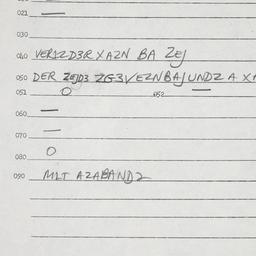 021 —
030
040 VERIZD3R XAZN BA ZEJ
050 DER ZEJD3 ZG3VEZNBAJUNDZ A X
051 O 052 —
060 —
070 —
080 O
090 MLT AZABANDZ